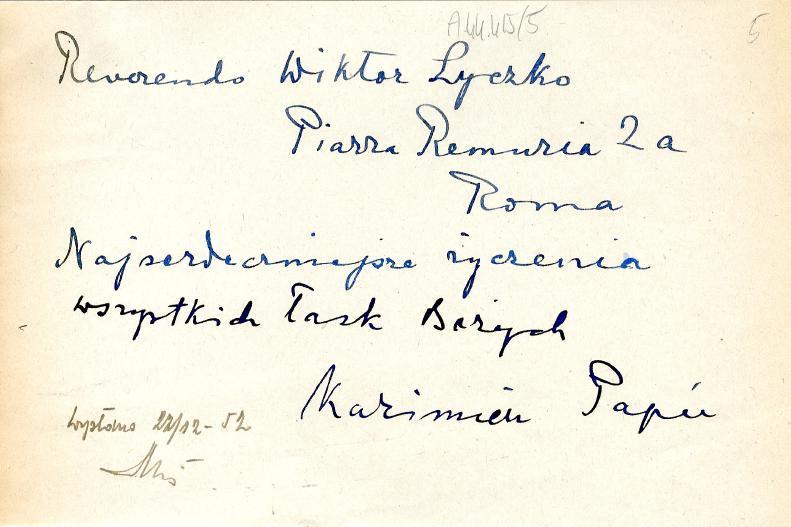 A.44.415/5
5
Reverendo Wiktor Łyczko
Piazza Remuria 2 a
Roma
Najserdeczniejsze życzenia
wszystkich Łask Bożych
Kazimierz Papée
Wysłano 22/12 - 52